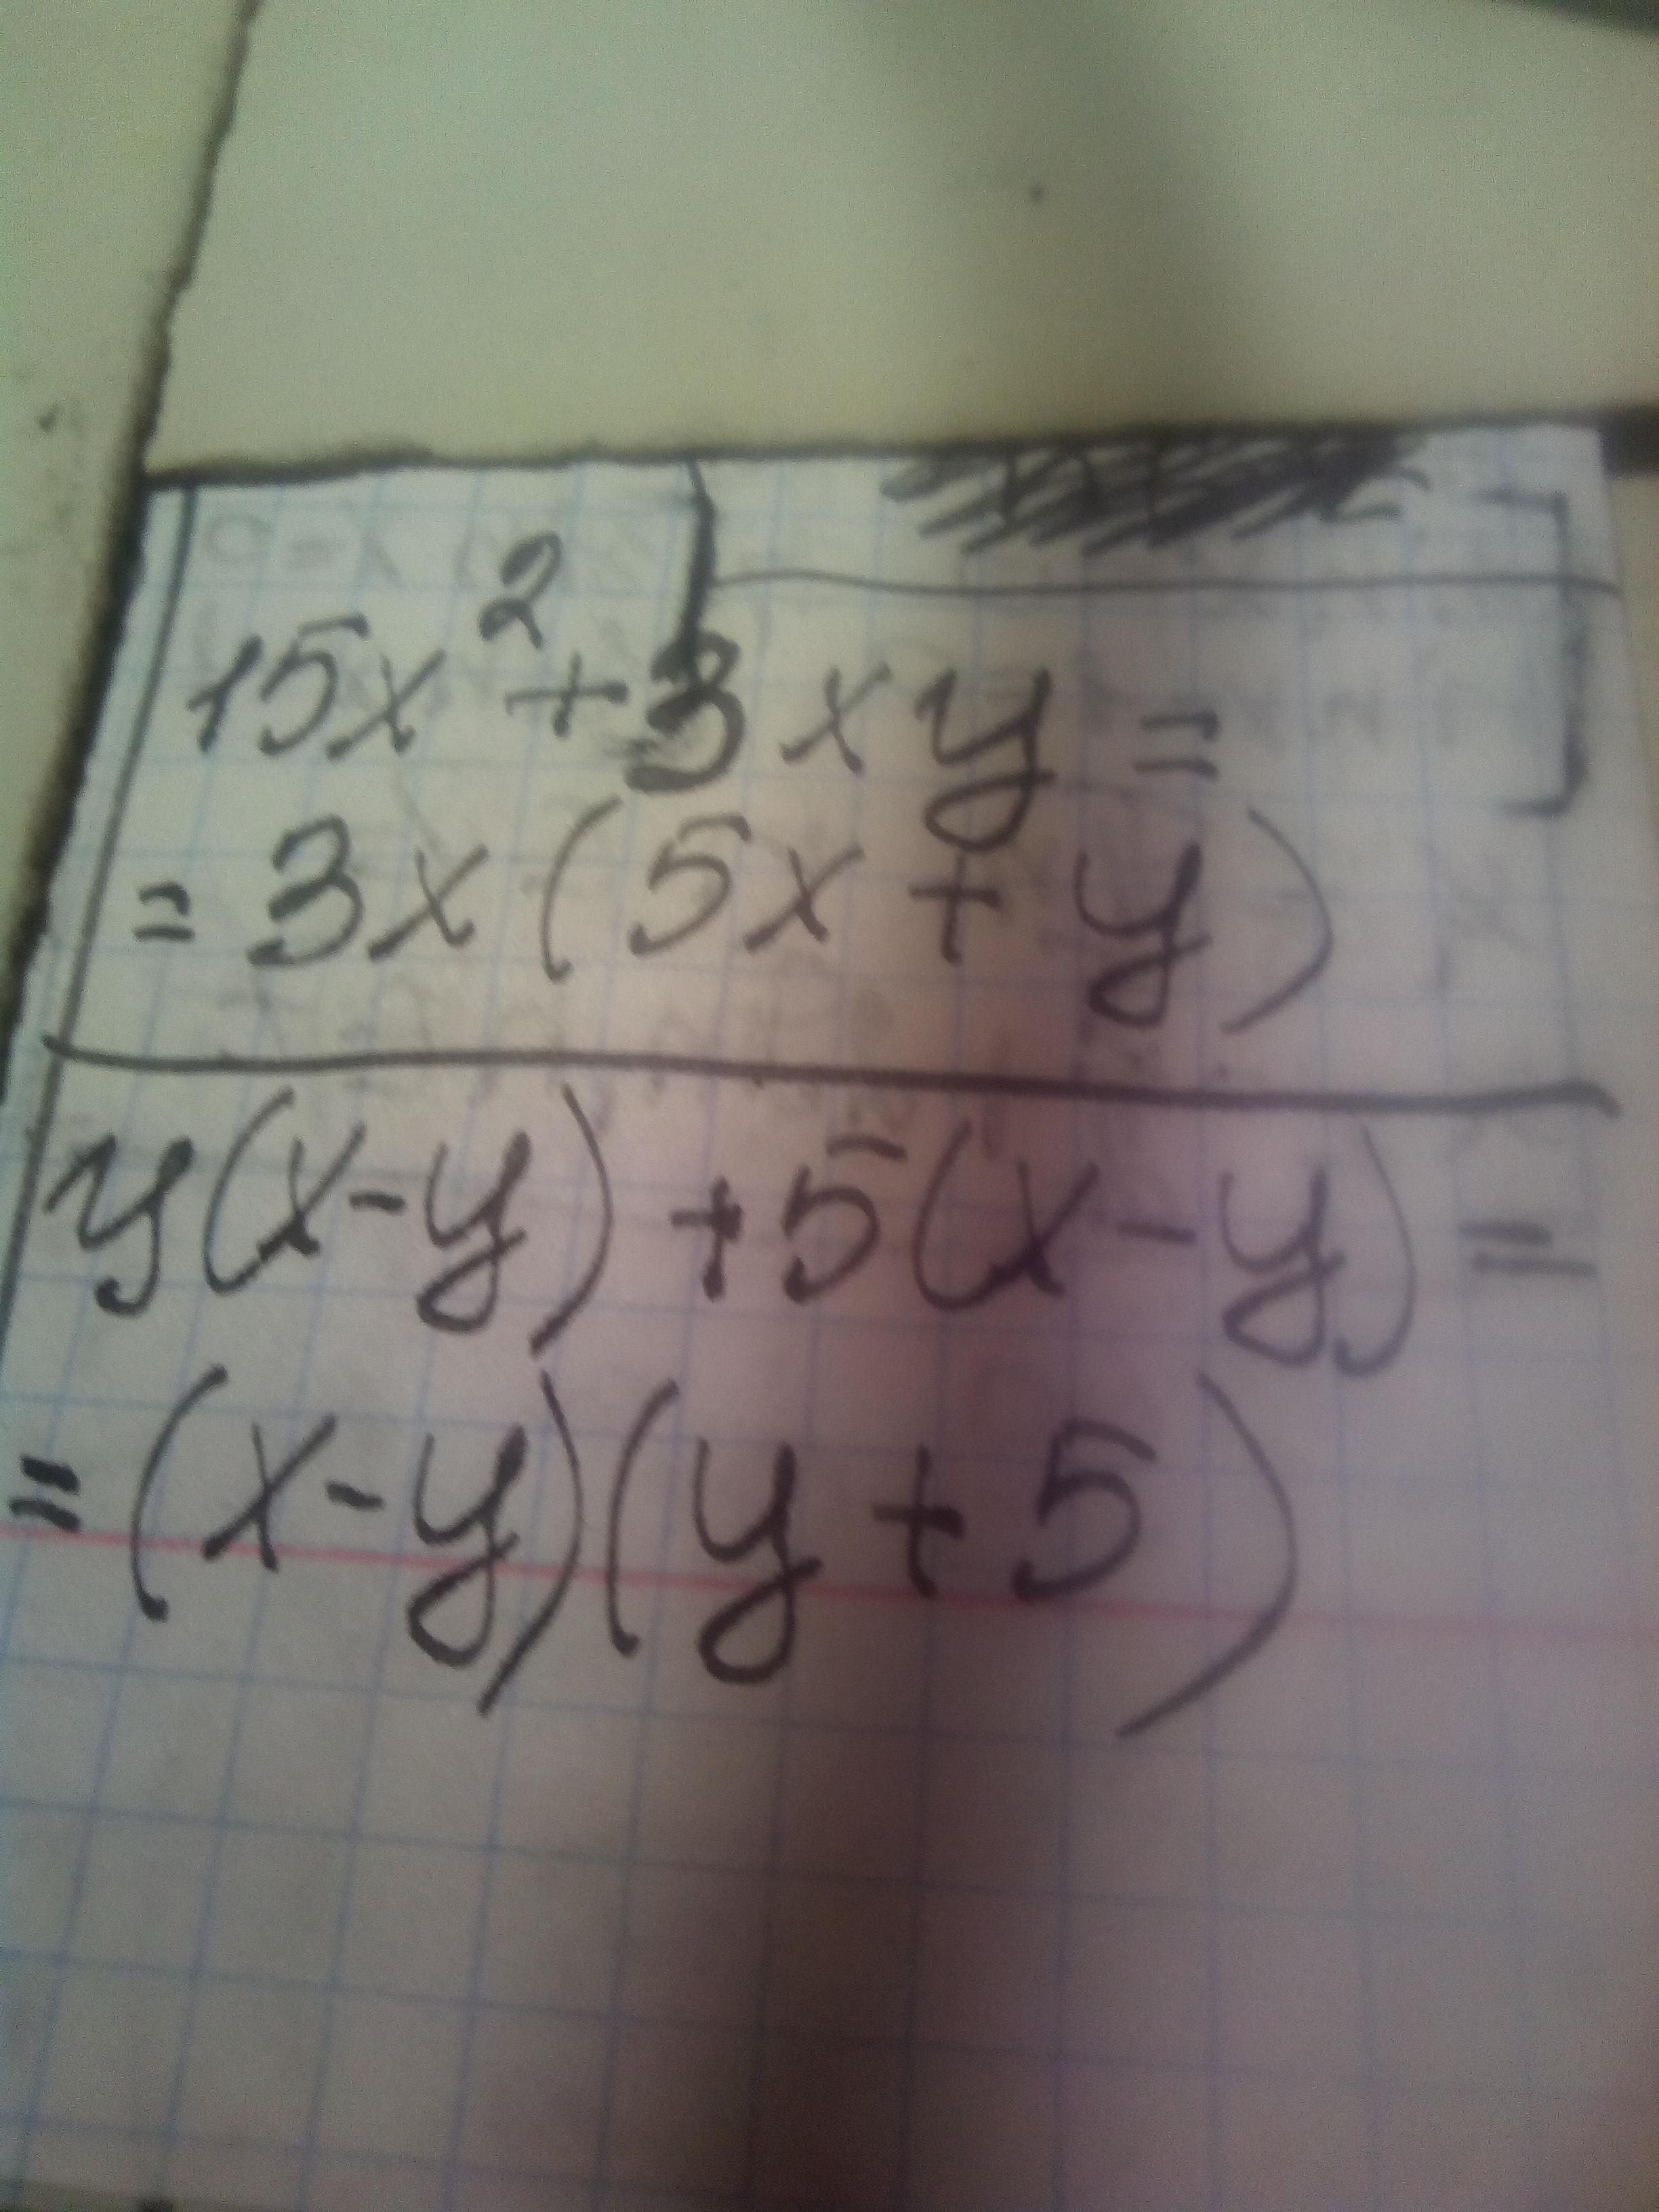 15x² + 3xy =
= 3x(5x + y)
y(x-y) + 5(x-y) =
= (x-y)(y+5)